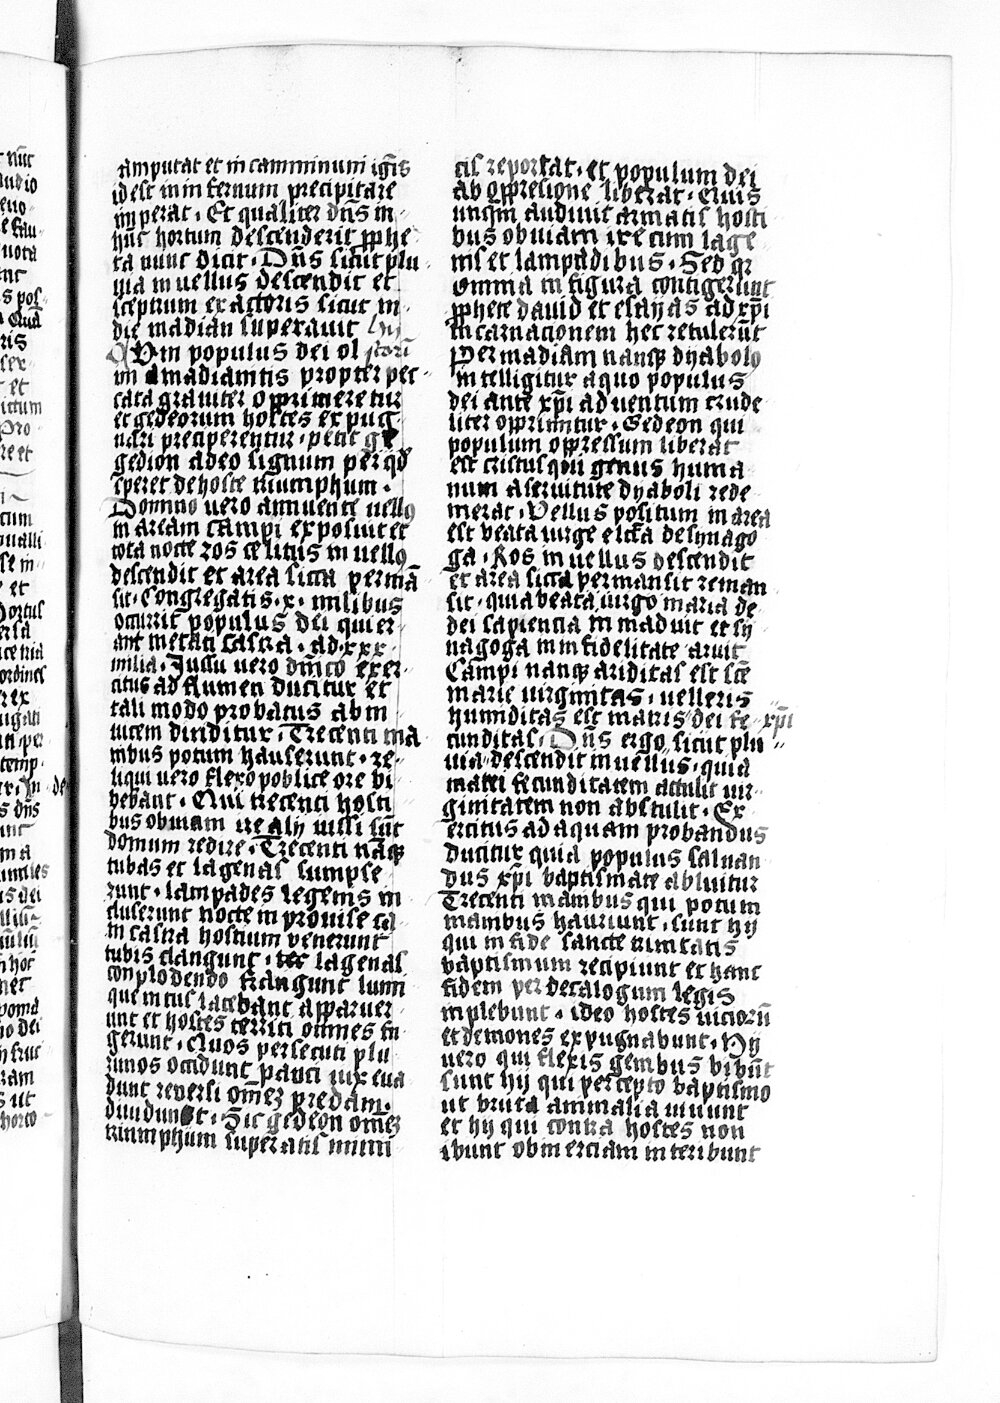 amputat et in camminum ignis
id est in in fernum precipitare
imperat · Et qualiter dn̄s in
hūc hortum descenderit ꝓphe
ta nunc dicit · Dn̄s sicut plu
uia in uellus descendit et
sceptrum exactoris sicut in
die madian superauit
Cum populus dei ol
im a madianitis propter pec
cata grauiter opprimeretur
et gedeorum hostes ex pug
nari preciperentur · petit
gedion a deo signum per qd̄
speret de hoste triumphum ·
Domino uero annuente uellus
in aream campi exposuit et
tota nocte ros celitus in uellus
descendit et area sicca permā
sit · Congregatis · x · milibus
occurrit populus dei qui er
ant metati castra · ad · xxx ·
milia · Jussu uero dn̄ico exer
citus ad flumen ducitur et
tali modo probatus ab in
uicem diuiditur · Trecenti ma
nibus potum hauserunt · re
liqui uero flexo poblice ore bi
bebant · Qui trecenti hosti
bus obuiam ire alij iussi sūt
domum redire · Trecenti nāqꝫ
tubas et lagenas sumpse
runt · lampades legenis in
cluserunt nocte in prouise ca
in castra hostium venerunt
tubis clangunt · lagenas
conplodendo frangunt lumi
que intus latebant apparuer
unt et hostes territi omnes fu
gerunt · Quos persecuti plu
rimos occidunt pauci uix eua
dunt reuersi om̄ez predam ·
diuidunt · Sic gedeon om̄ez
triumphum superatis inimi
cis reportat · et populum dei
ab oppresione liberat · Quis
unqm̄ audiuit armatis hosti
bus obuiam ire cum lage
nis et lampadibus · Sed qr
omnia in figura contigerunt
ꝓphete dauid et esayas ad xp̄i
incarnacionem hec retulerūt
Per madiam nanqꝫ dyabolo
intelligitur a quo populus
dei ante xp̄i aduentum crude
liter opprimitur · Gedeon qui
populum oppressum liberat
est cristus qui genus huma
num a seruitute dyaboli rede
merat · Vellus positum in area
est beata uirgo elc̄ta de synago
ga · Ros in uellus descendit
et area sicca permansit reman
sit · quia beata uirgo maria de
dei sapiencia in maduit et sy
nagoga in in fidelitate aruit
Campi nanqꝫ ariditas est sc̄e
marie uirginitas · uelleris
humiditas est matris dei fe xp̄i
cunditas · Dn̄s ergo sicut plu
uia descendit in uellus · quia
matri fecunditatem attulit uir
ginitatem non abstulit · Ex
ercitus ad aquam probandus
ducitur quia populus saluan
dus xp̄i baptismate abluitur
Trecenti manibus qui potum
manibus hauriunt · sunt hij
qui in fide sancte trinitatis
baptismum recipiunt et hanc
fidem per decalogum legis
inplebunt · ideo hostes uicioru̅
et demones expugnabunt · Hij
uero qui flexis genibus bibūt
sunt hij qui percepto baptismo
ut bruta animalia uiuunt
et hij qui contra hostes non
ibunt ob in erciam interibunt